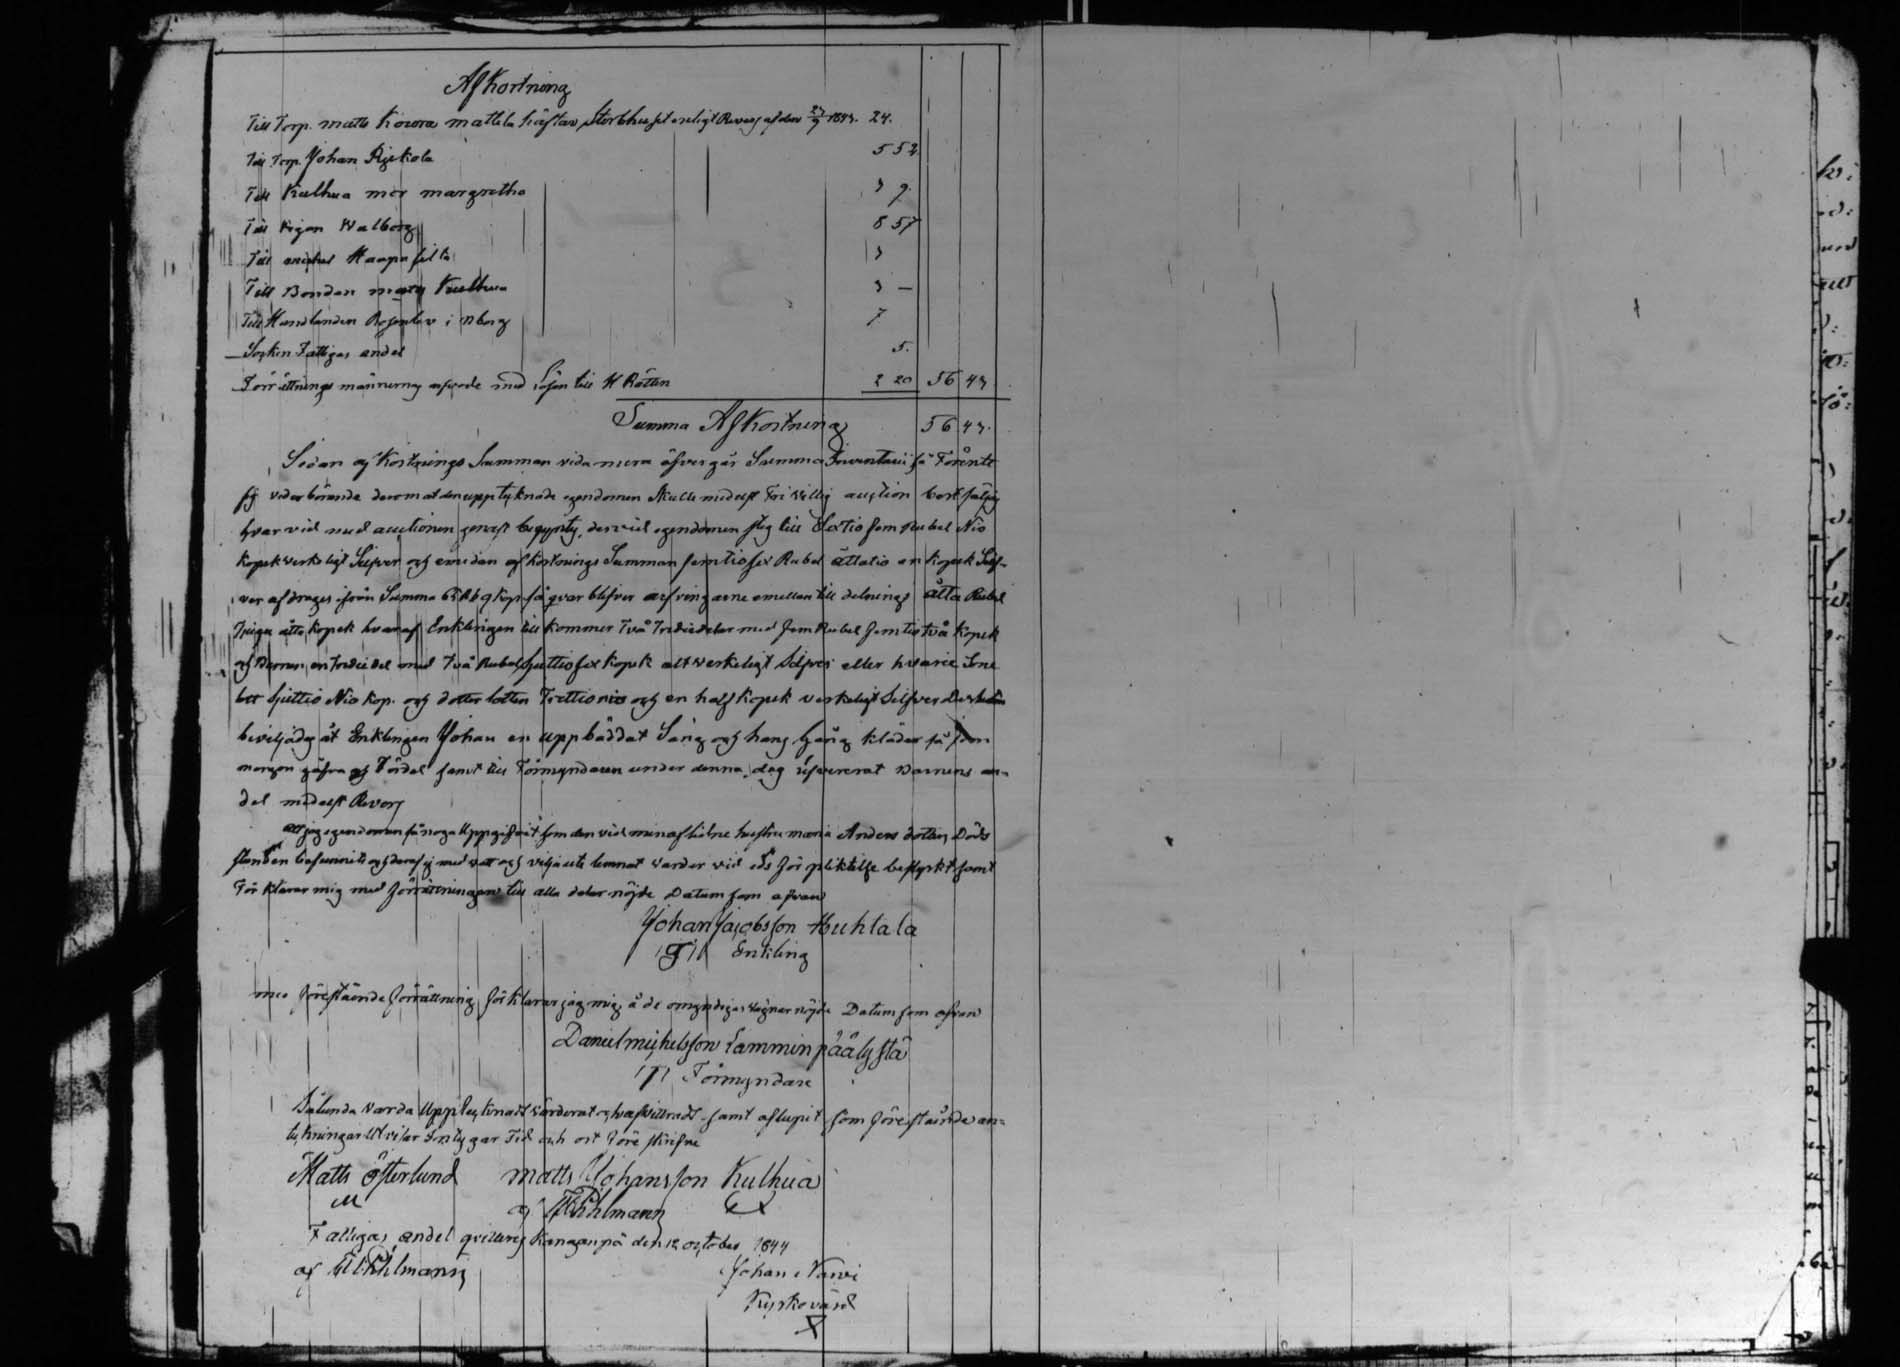 Afkortning
Till Torp. Matts Kiwora Mattila häftar Sterbhuset enligt Revers af den 27/9 1843. 24.
Till Torp. Johan Äyekola 5 52
Till Kulhua mor margretha 3 9.
Till Pigan Walborg 8 57
Till michel Haapa 3
Till Bonden matts Kulhua 3 —
Till Handlanden Rosenlew i Bborg 7
Socken Fattigas andel 5.
Förrättnings männernas arfvode med lösen till H Rätten 2 20 56 43.
Summa Afkortning 56 43.
Sedan afkortnings Summan vida mera öfvergår Summa Inventarii så Förente
sig vederbörande derom at den upptecknade egendomen skulle medelst Fri villig auction bortsäljas
hvar vid med auctionen genast begyntes, dervid egendomen steg till Sextio fem Rubel Nio
kopek verkeligt Silfver och emedan afkortnings Summan femtiosex Rubel åttatio en kopek Silf-
ver afdrages ifrån Summa 65 Rb 9 kop. så qvar blifver arfvingarne emellan till delning åtta Rubel
Tjugu åtta kopek hvaraf Enklingen till kommer Två Trediedelar med fem Rubel femtio två kopek
och Barnen en Tredie del med Två Rubel sjuttio sex kopek alt verkeligt Silfver eller hvarie Sone
lott sjuttio Nio kop. och dotter lotten Trettio nio och en half kopek verkeligt Silfver
beviljades åt Enklingen Johan en uppbäddat Säng och hans Gång kläder så som
morgon gåfva och Fördel samt till Förmyndaren under denna dag reverserat Barnens an-
del medelst Revers
att jag egendomen så noga Uppgifvit som den vid min aflidne hustru maria Anders dotters Döds
stunden befunnits och deraf ej med vett och vilja ute lemnat warder vid eds förpliktelse bestyrkt samt
Förklarar mig med förrättningen till alla delar nöjde Datum som ofvan
Johan Jacobsson Huhtala
Enkling
med föreståënde förrättning förklarar jag mig å de omyndigas vägnar nöjde Datum som ofvan
Daniel michelsson Lamminpäälystä
Förmyndare
Sålunda varda Upptecknadt värderat och afvittradt samt aflupit som föreståënde an-
teckningar Utvisar Intygar Tid och ort före skrifne
Matts Österlund matts Johansson Kulhua
M af Pihlmann
Fattigas andel qvitteras Kangaanpä den 12 october 1844
af Pihlmann Johan Narvi
Kyrkovärd